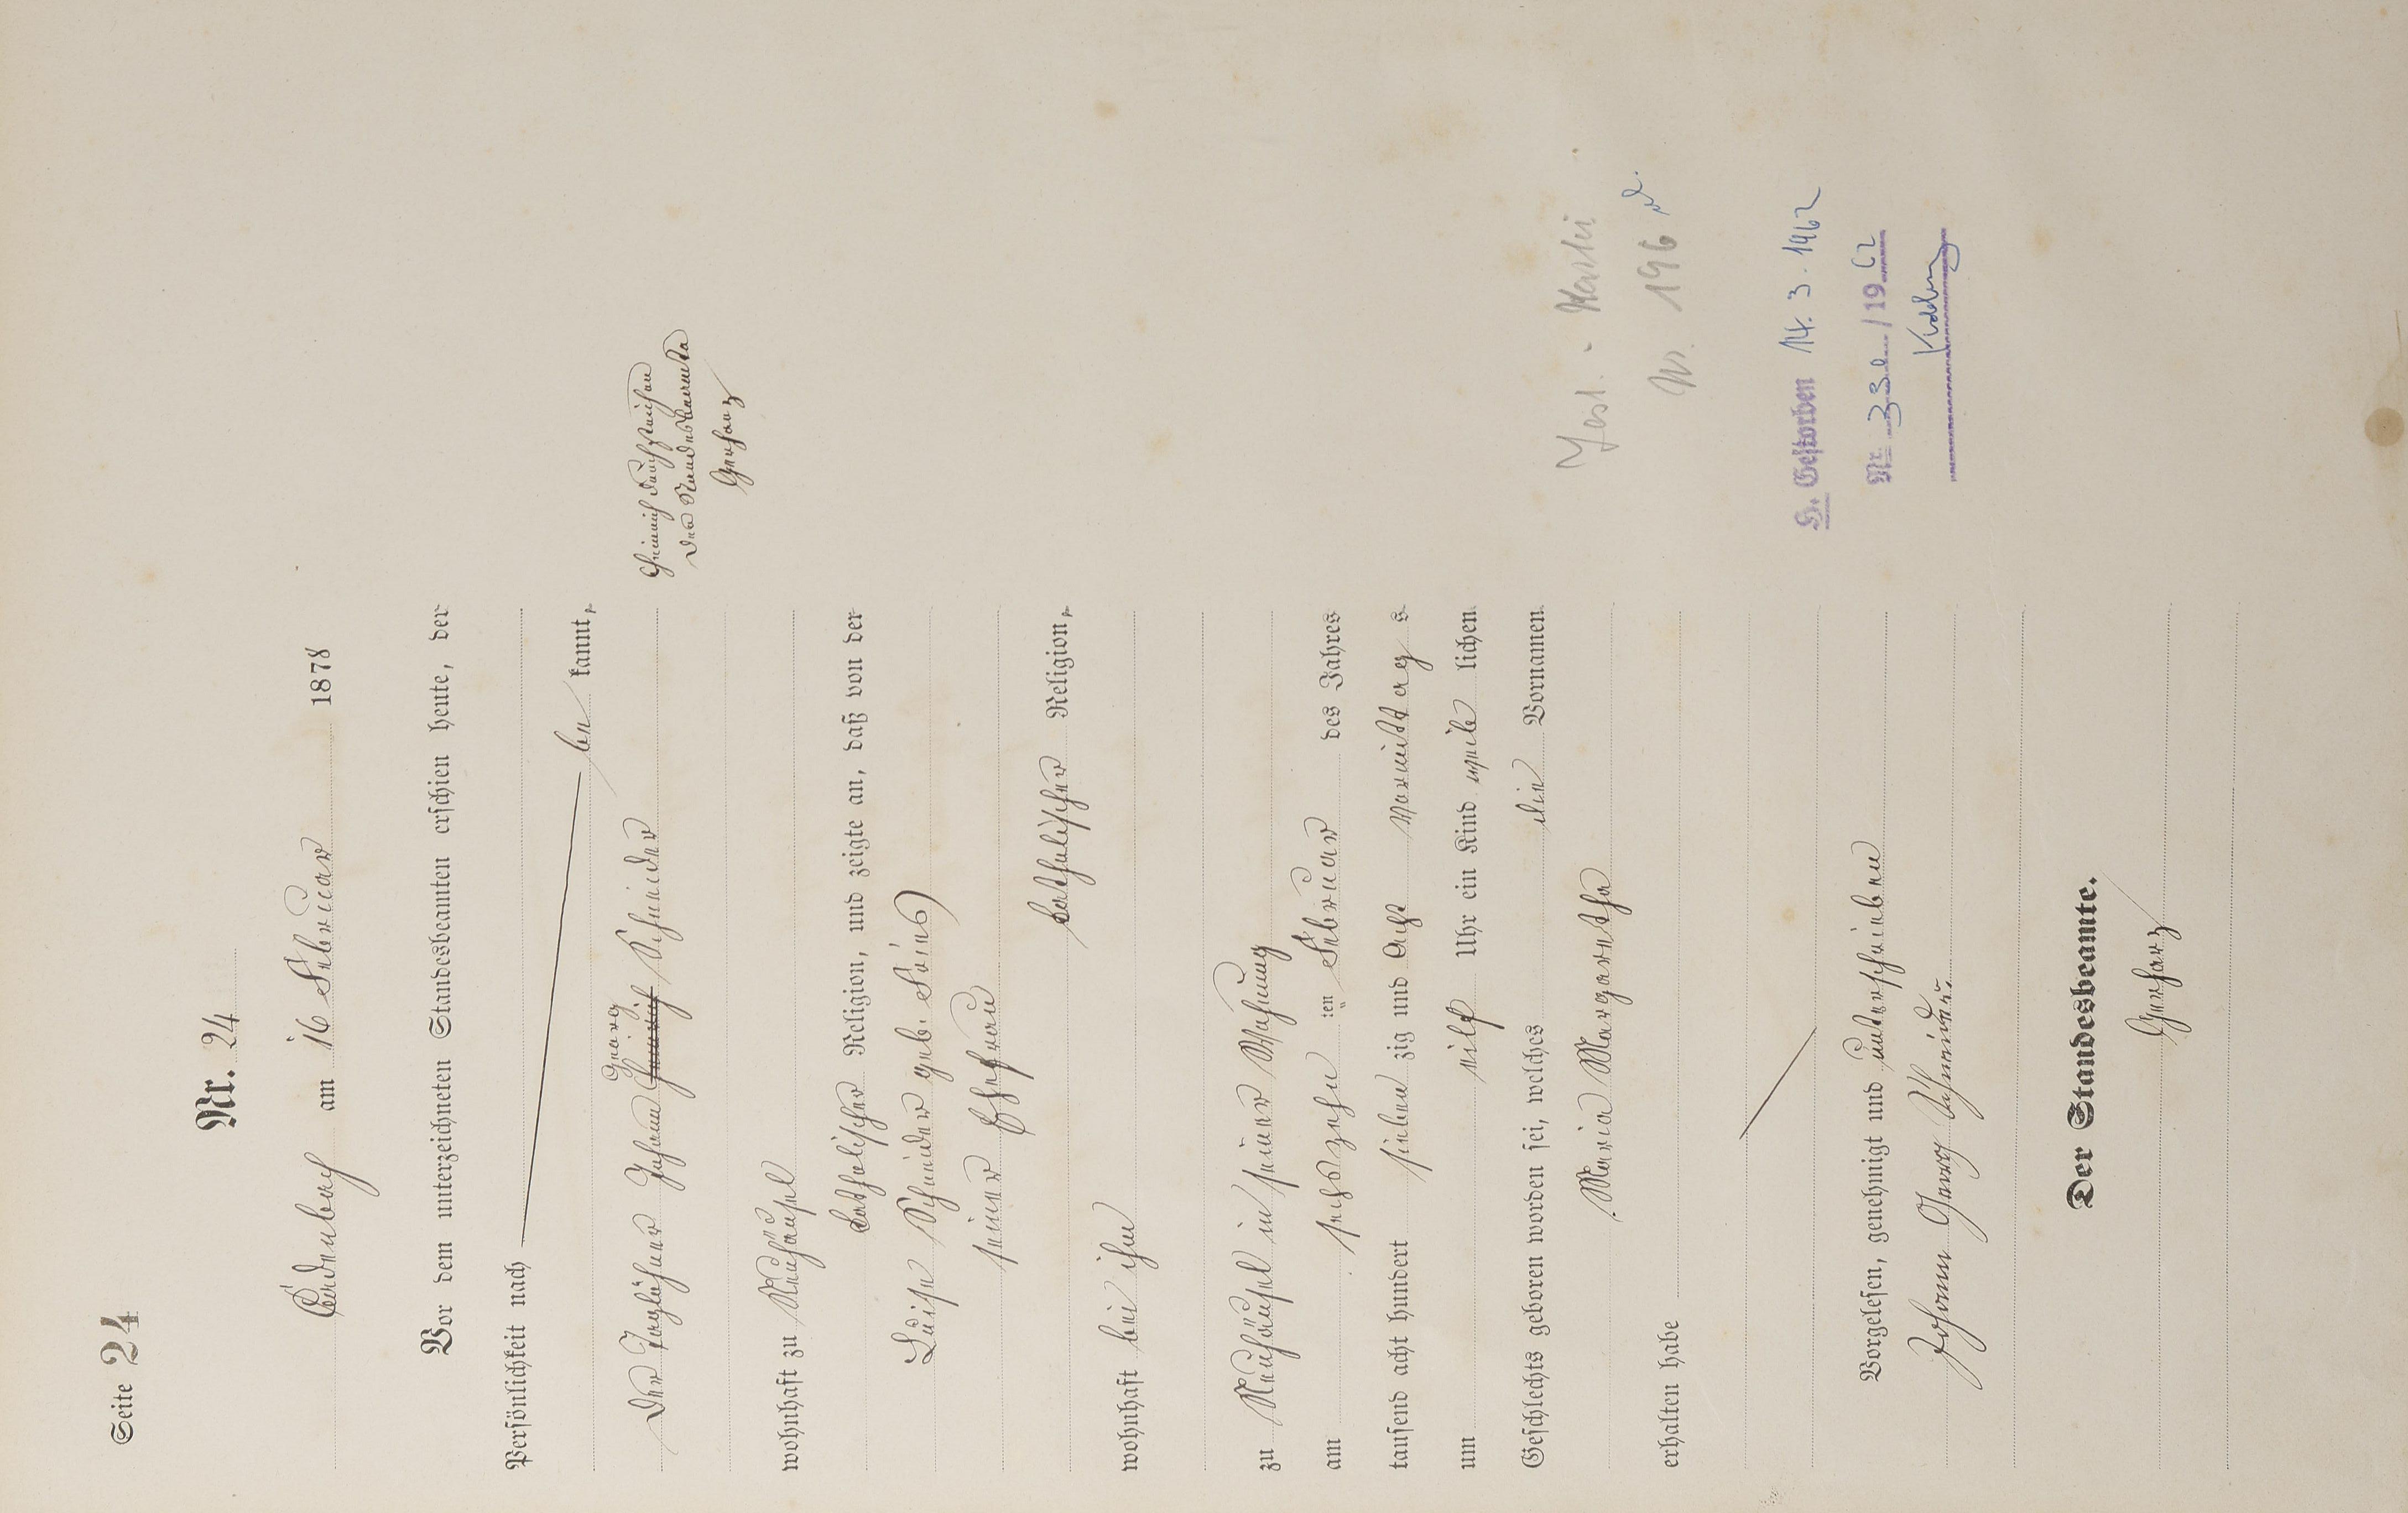 Seite 24
Nr. 24
Cadenbach am 16 Februar 1878
Vor dem unterzeichneten Standesbeamten erschien heute, der
Persönlichkeit nach
be kannt,
Georg
der Taglöhner Johann Heinrich Schneider
Heinrich durchstrichen
Der Standesbeamte
Gerharz
wohnhaft zu Neuhäusel
katholischer Religion, und zeigte an, daß von der
Luise Schneider geb.
seiner Ehefrau
katholischer Religion,
wohnhaft bei ihm
zu Neuhäusel in seiner Wohnung
am sechszehn ten Februar des Jahres
tausend acht hundert sieben zig und acht Vormittag s
um elf Uhr ein Kind weib lichen
Geschlechts geboren worden sei, welches die Vornamen
Maria Margaretha
erhalten habe
Nr. 196
H. Gestorben 14.3.1962
Nr. 330/1962
Vorgelesen, genehmigt und unterschrieben
Johann Georg Schneider
Der Standesbeamte.
Gerharz